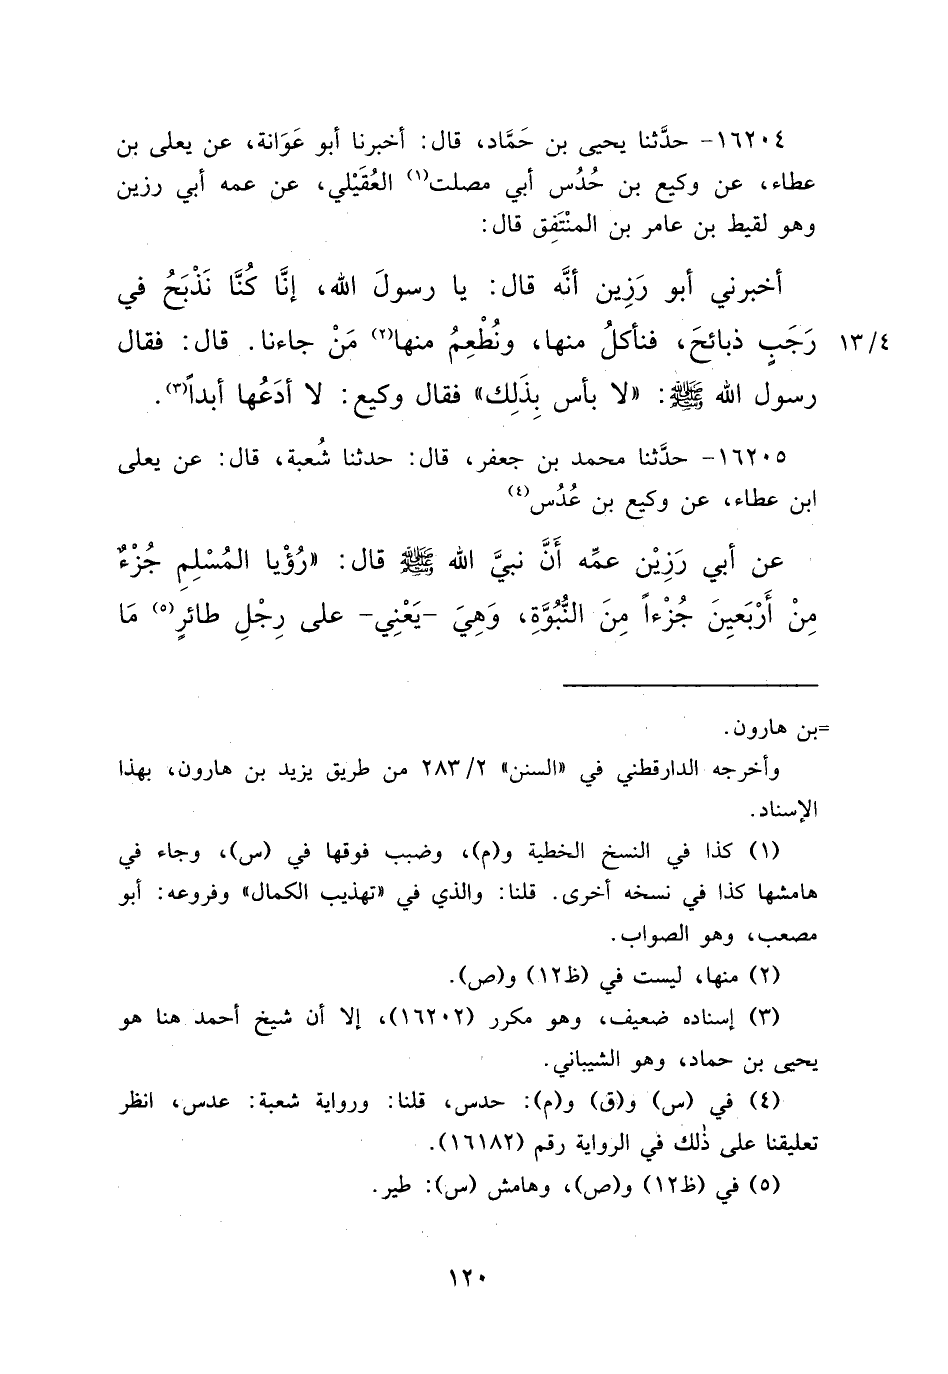 ١٦٢٠٤- حدَّثنا يحيى بن حَمَّاد، قال: أخبرنا أبو عَوَانة، عن يعلى بن
عطاء، عن وكيع بن حُدُس أبي مصلت(١) العُقَيْلي، عن عمه أبي رزين
وهو لقيط بن عامر بن المنْتَفِق قال:
أخبرني أبو رَزِين أنَّه قال: يا رسولَ الله، إنَّا كُنَّا نَذْبَحُ في
رَجَبٍ ذبائحَ، فنأكلُ منها، ونُطْعِمُ منها(٢) مَنْ جاءنا. قال: فقال ١٣/٤
رسول الله ﷺ: «لا بأس بِذَلِك» فقال وكيع: لا أدَعُها أبداً(٣).
١٦٢٠٥- حدَّثنا محمد بن جعفر، قال: حدثنا شُعبة، قال: عن يعلى
ابن عطاء، عن وكيع بن عُدُس(٤)
عن أبي رَزِيْن عمِّه أَنَّ نبيَّ الله ﷺ قال: «رُؤْيا المُسْلِمِ جُزْءٌ
مِنْ أَرْبَعينَ جُزْءاً مِنَ النُّبُوَّةِ، وَهِيَ -يَعْنِي- على رِجْلِ طائرٍ(٥) مَا
=بن هارون.
وأخرجه الدارقطني في «السنن» ٢٨٣/٢ من طريق يزيد بن هارون، بهذا
الإسناد.
(١) كذا في النسخ الخطية و(م)، وضبب فوقها في (س)، وجاء في
هامشها كذا في نسخه أخرى. قلنا: والذي في «تهذيب الكمال» وفروعه: أبو
مصعب، وهو الصواب.
(٢) منها، ليست في (ظ١٢) و(ص).
(٣) إسناده ضعيف، وهو مكرر (١٦٢٠٢)، إلا أن شيخ أحمد هنا هو
يحيى بن حماد، وهو الشيباني.
(٤) في (س) و(ق) و(م): حدس، قلنا: ورواية شعبة: عدس، انظر
تعليقنا على ذٰلك في الرواية رقم (١٦١٨٢).
(٥) في (ظ١٢) و(ص)، وهامش (س): طير.
١٢٠